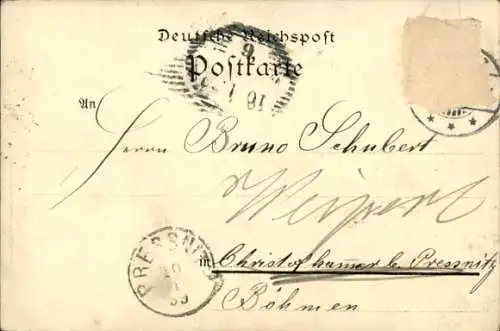 Deutsche Reichspost
Postkarte
An
Herrn Bruno Schubert
Weipert
in Christofhammer b. Pressnitz
Böhmen
PRESSNITZ